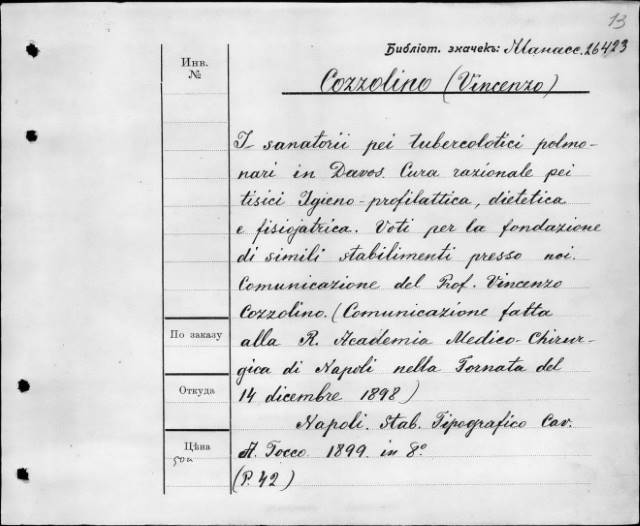 13
Библіот. значекъ: Манасс. 26423
Инв.
№
Cozzolino (Vincenzo)
I sanatorii pei tubercolotici polmo-
nari in Davos. Cura razionale pei
tisici Igieno-profilattica, dietetica
e fisiojatrica. Voti per la fondazione
di simili stabilimenti presso noi.
Comunicazione del Prof. Vincenzo
Cozzolino. (Comunicazione fatta
alla R. Academia Medico-Chirur-
gica di Napoli nella Tornata del
14 dicembre 1898)
Napoli. Stab. Tipografico Cav.
A. Tocco 1899. in 8°
(P. 42)
По заказу
Откуда
Цѣна